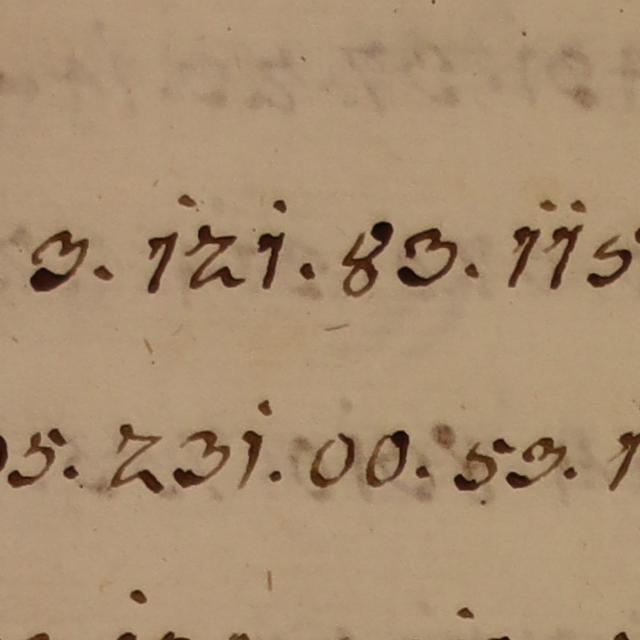 3. 121. 83. 115
05. 231. 00. 53. 1